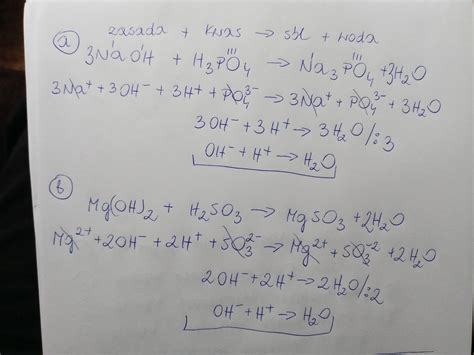 zasada + kwas → sól + woda
a) 3NaOH + H₃PO₄ → Na₃PO₄ + 3H₂O
3Na⁺ + 3OH⁻ + 3H⁺ + PO₄³⁻ → 3Na⁺ + PO₄³⁻ + 3H₂O
3OH⁻ + 3H⁺ → 3H₂O /:3
OH⁻ + H⁺ → H₂O
b) Mg(OH)₂ + H₂SO₃ → MgSO₃ + 2H₂O
Mg²⁺ + 2OH⁻ + 2H⁺ + SO₃²⁻ → Mg²⁺ + SO₃⁻² + 2H₂O
2OH⁻ + 2H⁺ → 2H₂O /:2
OH⁻ + H⁺ → H₂O